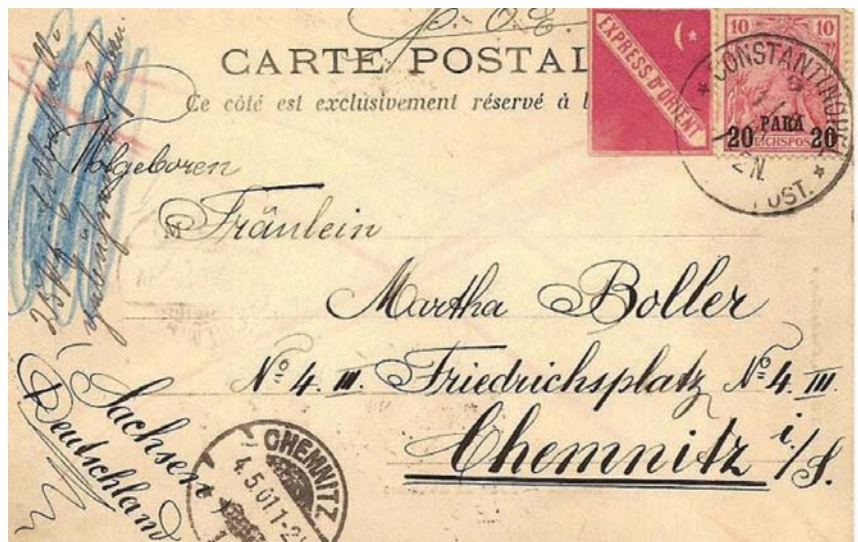 p. O. E.
CARTE POSTAL
Ce côté est exclusivement réservé à l
EXPRESS D'ORIENT
10 10
20 PARA 20
REICHSPOST
CONSTANTINOPEL
POST.
Wolgeboren
Fräulein
Martha Boller
No 4. III. Friedrichsplatz No 4. III.
Chemnitz i/S.
Sachsen
Deutschland
CHEMNITZ
4.5.01.1-2